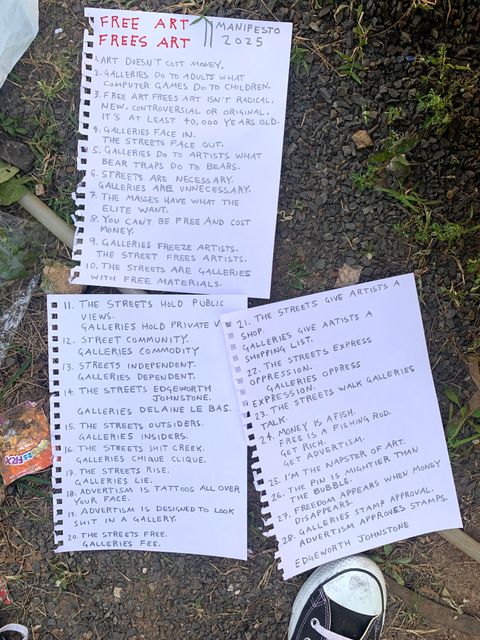 FREE ART
FREES ART
MANIFESTO
2025
1. ART DOESN'T COST MONEY.
2. GALLERIES DO TO ADULTS WHAT
COMPUTER GAMES DO TO CHILDREN.
3. FREE ART FREES ART ISN'T RADICAL.
NEW, CONTROVERSIAL OR ORIGINAL.
IT'S AT LEAST 40,000 YEARS OLD.
4. GALLERIES FACE IN.
THE STREETS FACE OUT.
5. GALLERIES DO TO ARTISTS WHAT
BEAR TRAPS DO TO BEARS.
6. STREETS ARE NECESSARY.
GALLERIES ARE UNNECESSARY.
7. THE MASSES HAVE WHAT THE
ELITE WANT.
8. YOU CAN'T BE FREE AND COST
MONEY.
9. GALLERIES FREEZE ARTISTS.
THE STREET FREES ARTISTS.
10. THE STREETS ARE GALLERIES
WITH FREE MATERIALS.
11. THE STREETS HOLD PUBLIC
VIEWS.
GALLERIES HOLD PRIVATE V
12. STREET COMMUNITY.
GALLERIES COMMODITY
13. STREETS INDEPENDENT.
GALLERIES DEPENDENT.
14. THE STREETS EDGEWORTH
JOHNSTONE.
GALLERIES DELAINE LE BAS.
15. THE STREETS OUTSIDERS.
GALLERIES INSIDERS.
16. THE STREETS SHIT CREEK.
GALLERIES CHIQUE CLIQUE.
17. THE STREETS RISE.
GALLERIES LIE.
18. ADVERTISM IS TATTOOS ALL OVER
YOUR FACE.
19. ADVERTISM IS DESIGNED TO LOOK
SHIT IN A GALLERY.
20. THE STREETS FREE.
GALLERIES FEE.
21. THE STREETS GIVE ARTISTS A
SHOP.
GALLERIES GIVE ARTISTS A
SHOPPING LIST.
22. THE STREETS EXPRESS
OPPRESSION.
GALLERIES OPPRESS
EXPRESSION.
23. THE STREETS WALK GALLERIES
TALK.
24. MONEY IS A FISH.
FREE IS A FISHING ROD.
GET RICH.
GET ADVERTISM.
25. I'M THE NAPSTER OF ART.
26. THE PIN IS MIGHTIER THAN
THE BUBBLE.
27. FREEDOM APPEARS WHEN MONEY
DISAPPEARS.
28. GALLERIES STAMP APPROVAL.
ADVERTISM APPROVES STAMPS.
EDGEWORTH JOHNSTONE